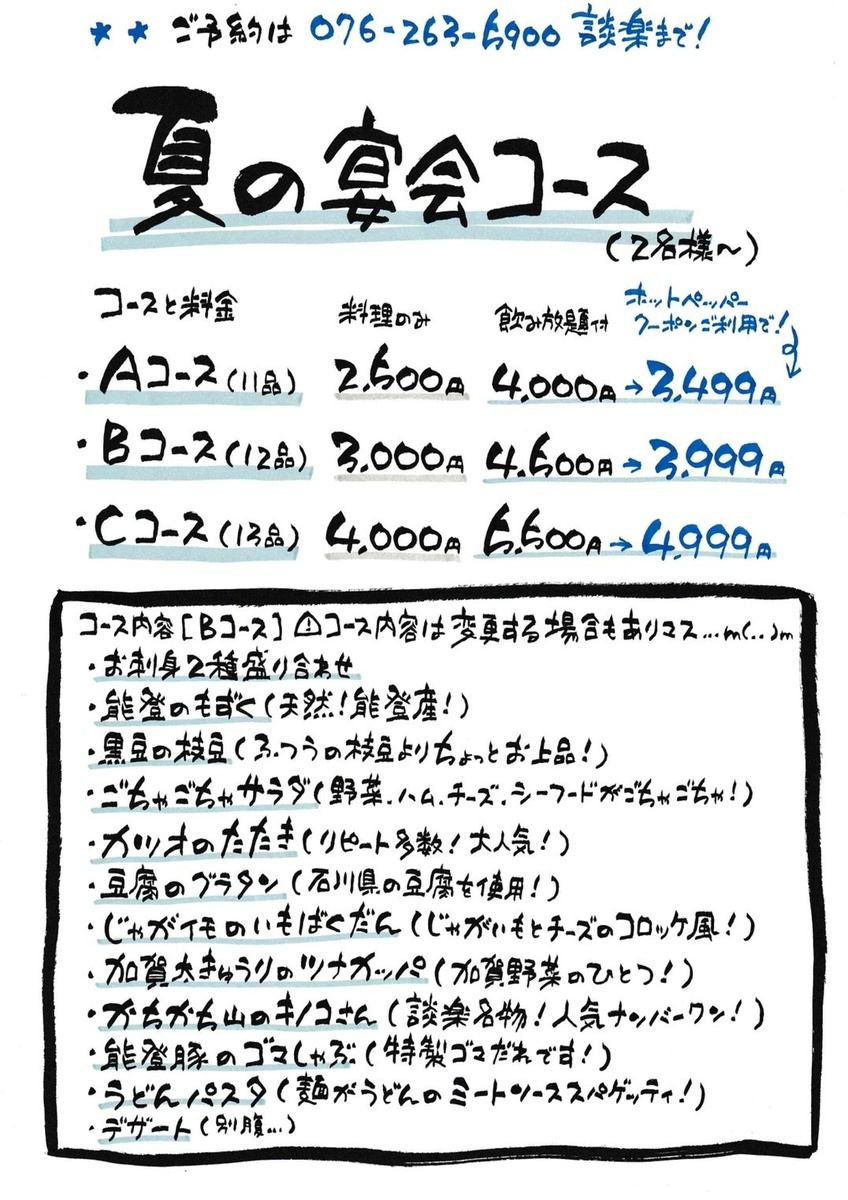 ★ ★ ご予約は 076-263-5900 談楽まで!
夏の宴会コース
(2名様〜)
コースと料金 料理のみ 飲み放題付 ホットペッパー
クーポンご利用で!
・Aコース(11品) 2,500円 4,000円→3,499円
・Bコース(12品) 3,000円 4,500円→3,999円
・Cコース(13品) 4,000円 5,500円→4,999円
コース内容[Bコース]⚠コース内容は変更する場合もありマス...m(..)m
・お刺身2種盛り合わせ
・能登のもずく(天然!能登産!)
・黒豆の枝豆(ふつうの枝豆よりちょっとお上品!)
・ごちゃごちゃサラダ(野菜.ハム.チーズ.シーフードがごちゃごちゃ!)
・カツオのたたき(リピート多数!大人気!)
・豆腐のグラタン(石川県の豆腐を使用!)
・じゃがイモのいもばくだん(じゃがいもとチーズのコロッケ風!)
・加賀太きゅうりのツナカッパ(加賀野菜のひとつ!)
・かちかち山のキノコさん(談楽名物!人気ナンバーワン!)
・能登豚のゴマしゃぶ(特製ゴマだれです!)
・うどんパスタ(麺がうどんのミートソーススパゲッティ!)
・デザート(別腹...)